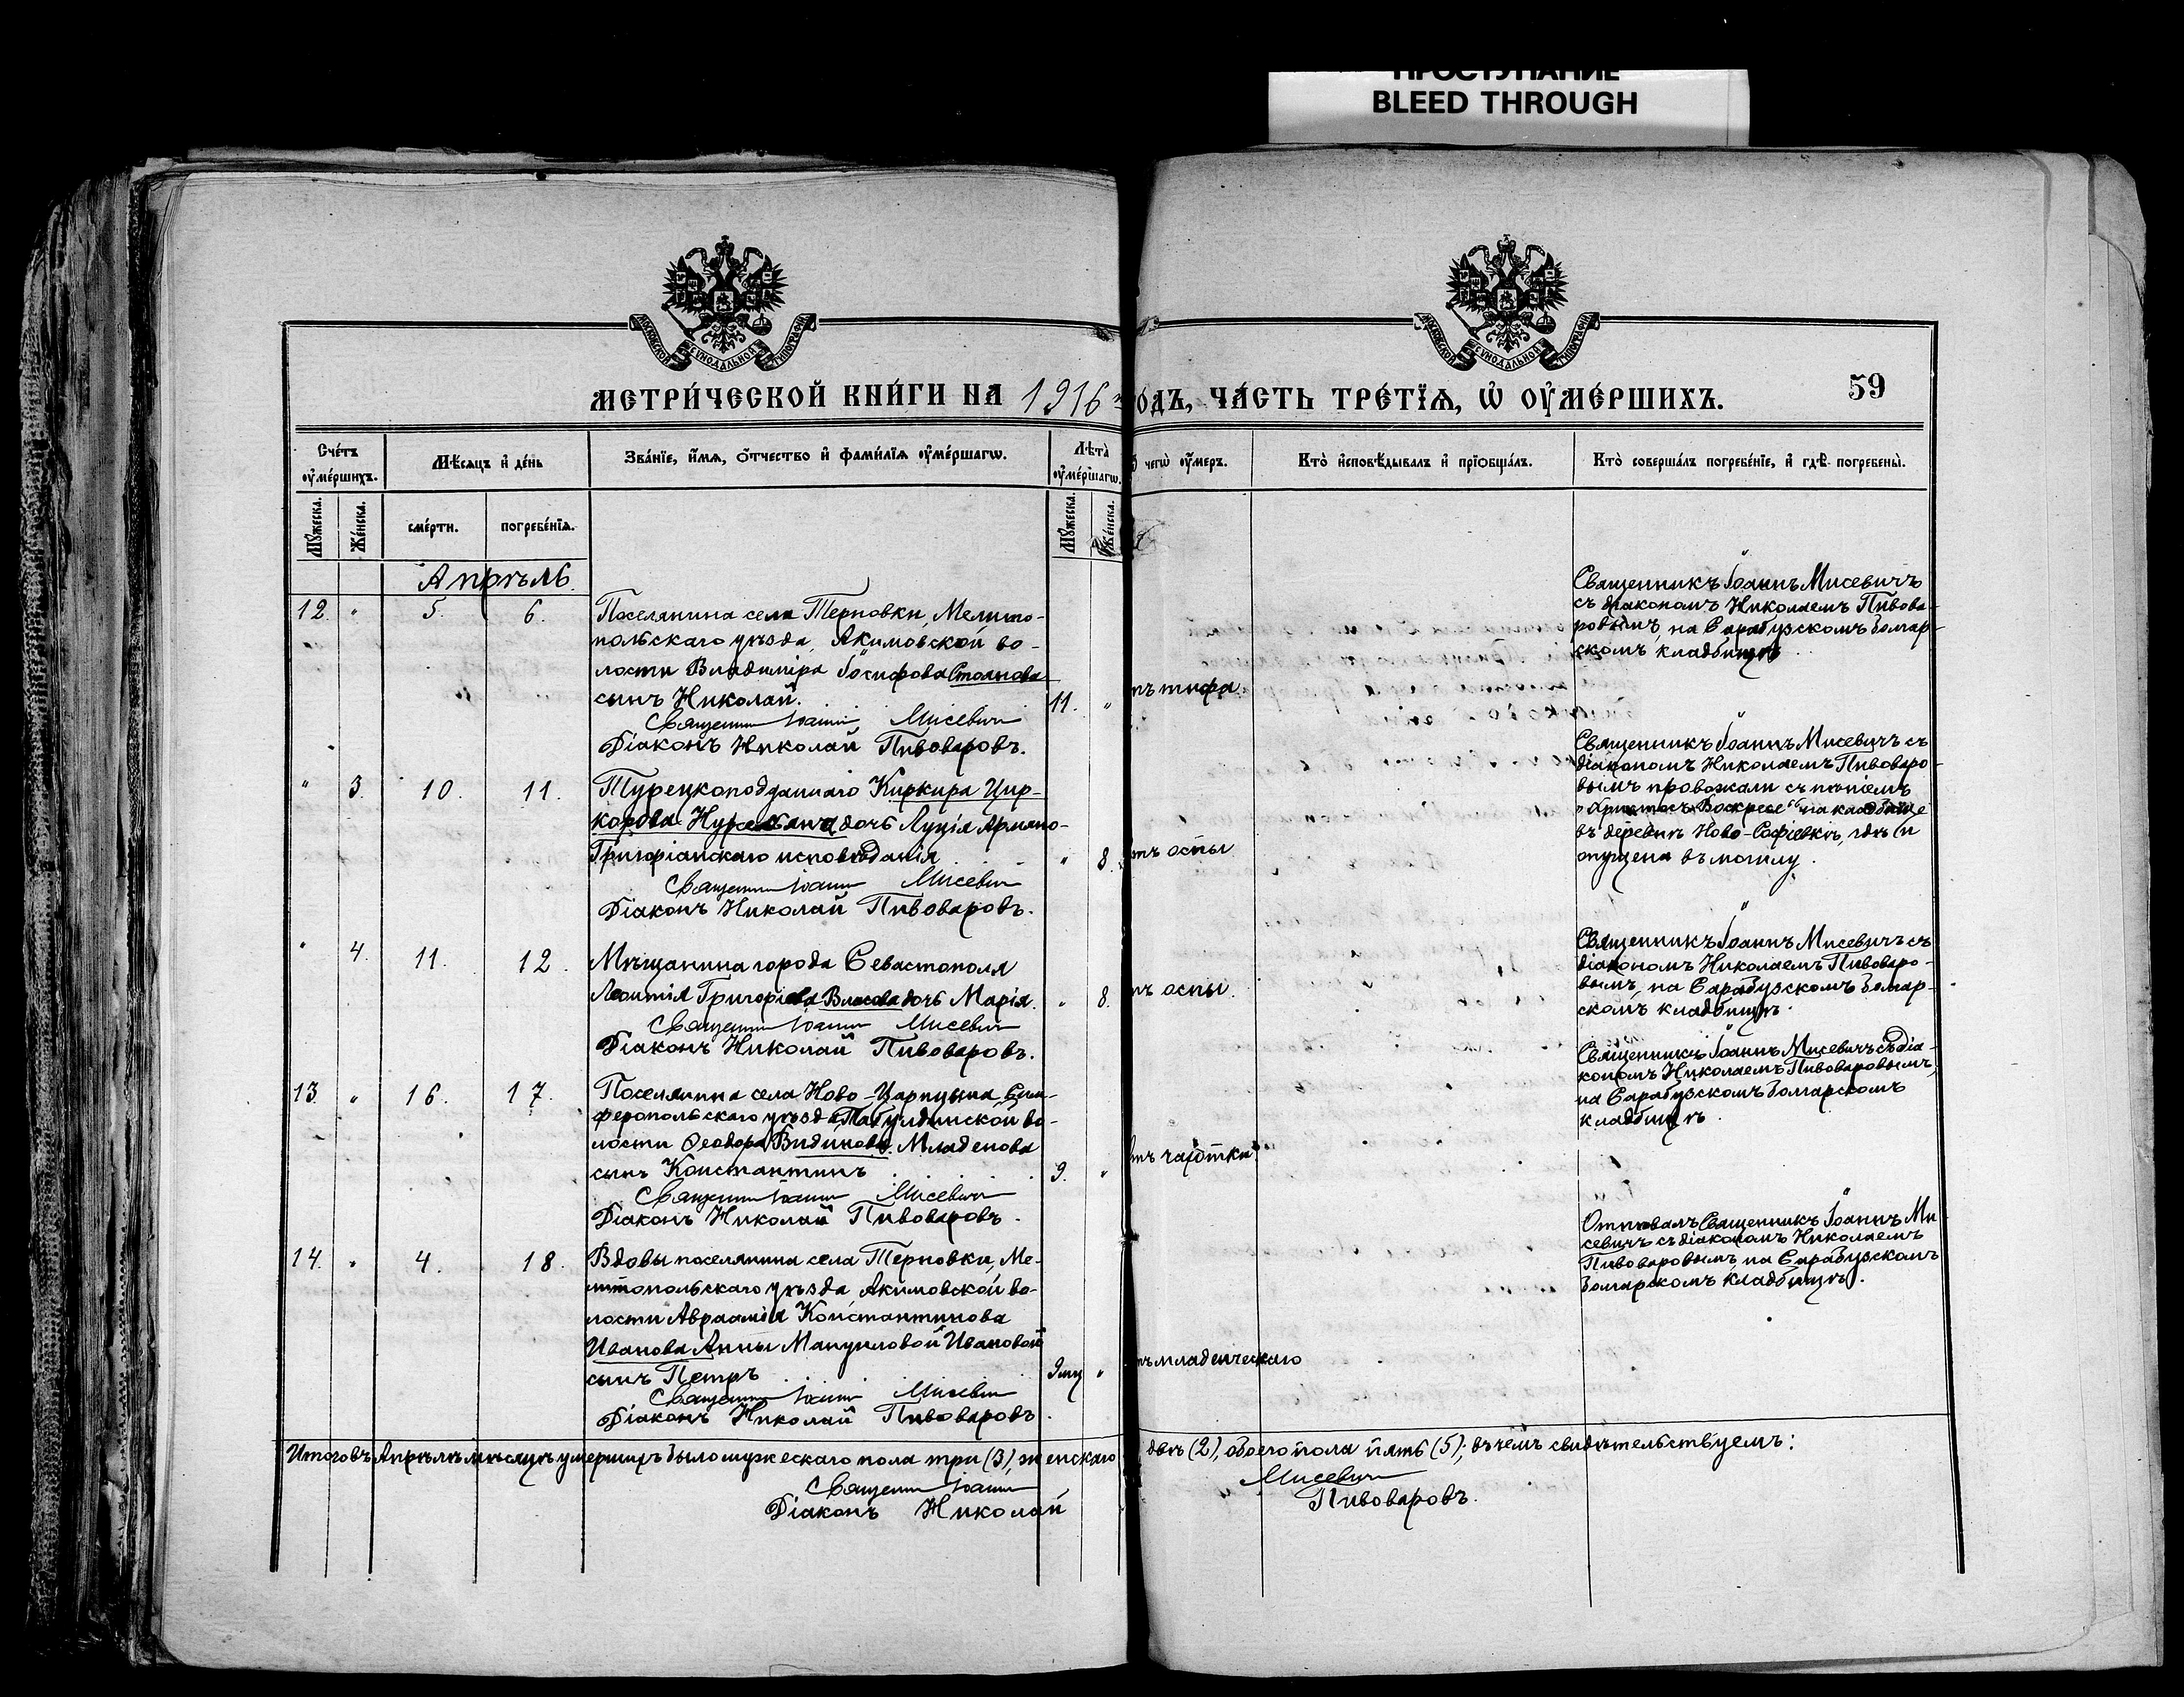 ПРОСТУПАНИЕ
BLEED THROUGH
МОСКОВСКОЙ СѴНОДАЛЬНОЙ ТИПОГРАФІИ
МОСКОВСКОЙ СѴНОДАЛЬНОЙ ТИПОГРАФІИ
МЕТРИ́ЧЕСКОЙ КНИ́ГИ НА 1916 г
о́дъ, ча́сть тре́тїѧ, ѡ҆ ᲂу҆ме́ршихъ.
59
Сче́тъ ᲂу҆ме́ршихъ.
Мѣ́сѧцъ и҆ де́нь
Зва́нїе, и҆́мѧ, ѻ҆́тчество и҆ фами́лїѧ ᲂу҆ме́ршагѡ.
Лѣ́та ᲂу҆ме́ршагѡ.
чегѡ̀ ᲂу҆́меръ.
Кто̀ и҆сповѣ́дывалъ и҆ прїѻбща́лъ.
Кто̀ соверша́лъ погребе́нїе, и҆ гдѣ̀ погребены̀.
Мꙋ́жеска. Же́нска.
сме́рти. погребе́нїѧ.
Мꙋ́жеска. Же́нска.
Апрѣль.
12. " 5. 6.
Поселянина села Терновки, Мелито-
польскаго уѣзда, Акимовской во-
лости Владиміра Іосифова Стоянова
сынъ Николай. 11. "
Священникъ Іоаннъ Мисевичъ
Діаконъ Николай Пивоваровъ.
тъ тифа
Священникъ Іоаннъ Мисевичъ
съ діакономъ Николаемъ Пивова-
ровымъ, на Сарабузскомъ болгар-
скомъ кладбищѣ
" 3. 10. 11.
Турецкоподданнаго Киркира Цир-
корова дочь Луція Армяно-
Григоріанскаго исповѣданія " 8.
Священникъ Іоаннъ Мисевичъ
Діаконъ Николай Пивоваровъ.
тъ оспы
Священникъ Іоаннъ Мисевичъ съ
діакономъ Николаемъ Пивоваро-
вымъ провожали съ пѣніемъ
„Христосъ Воскресе“ на кладбище
въ деревнѣ Ново-Софіевкѣ, гдѣ и
опущена въ могилу.
" 4. 11. 12.
Мѣщанина города Севастополя
Леонтія Григоріева Власова дочь Марія. " 8.
Священникъ Іоаннъ Мисевичъ
Діаконъ Николай Пивоваровъ.
тъ оспы.
Священникъ Іоаннъ Мисевичъ съ
діакономъ Николаемъ Пивоваро-
вымъ, на Сарабузскомъ болгар-
скомъ кладбищѣ.
13. " 16. 17.
Поселянина села Ново-Царицына, Сим-
феропольскаго уѣзда, Табулдинской во-
лости Ѳеодора Видинова Младенова
сынъ Константинъ 9. "
Священникъ Іоаннъ Мисевичъ
Діаконъ Николай Пивоваровъ.
тъ чахотки
Священникъ Іоаннъ Мисевичъ съ діа-
кономъ Николаемъ Пивоваровымъ,
на Сарабузскомъ болгарскомъ
кладбищѣ.
14. " 4. 18.
Вдовы поселянина села Терновки, Ме-
литопольскаго уѣзда Акимовской во-
лости Авраамія Константинова
Иванова Анны Мануиловой Ивановой
сынъ Петръ 9 мц "
Священникъ Іоаннъ Мисевичъ
Діаконъ Николай Пивоваровъ.
тъ младенческаго
Отпѣвалъ Священникъ Іоаннъ Ми
севичъ съ діакономъ Николаемъ
Пивоваровымъ на Сарабузскомъ
болгарскомъ кладбищѣ.
Итого въ Апрѣлѣ мѣсяцѣ умершихъ было мужескаго пола три (3), женскаго двѣ (2), обоего пола пять (5); въ чемъ свидѣтельствуемъ:
Священникъ Іоаннъ Мисевичъ
Діаконъ Николай Пивоваровъ.